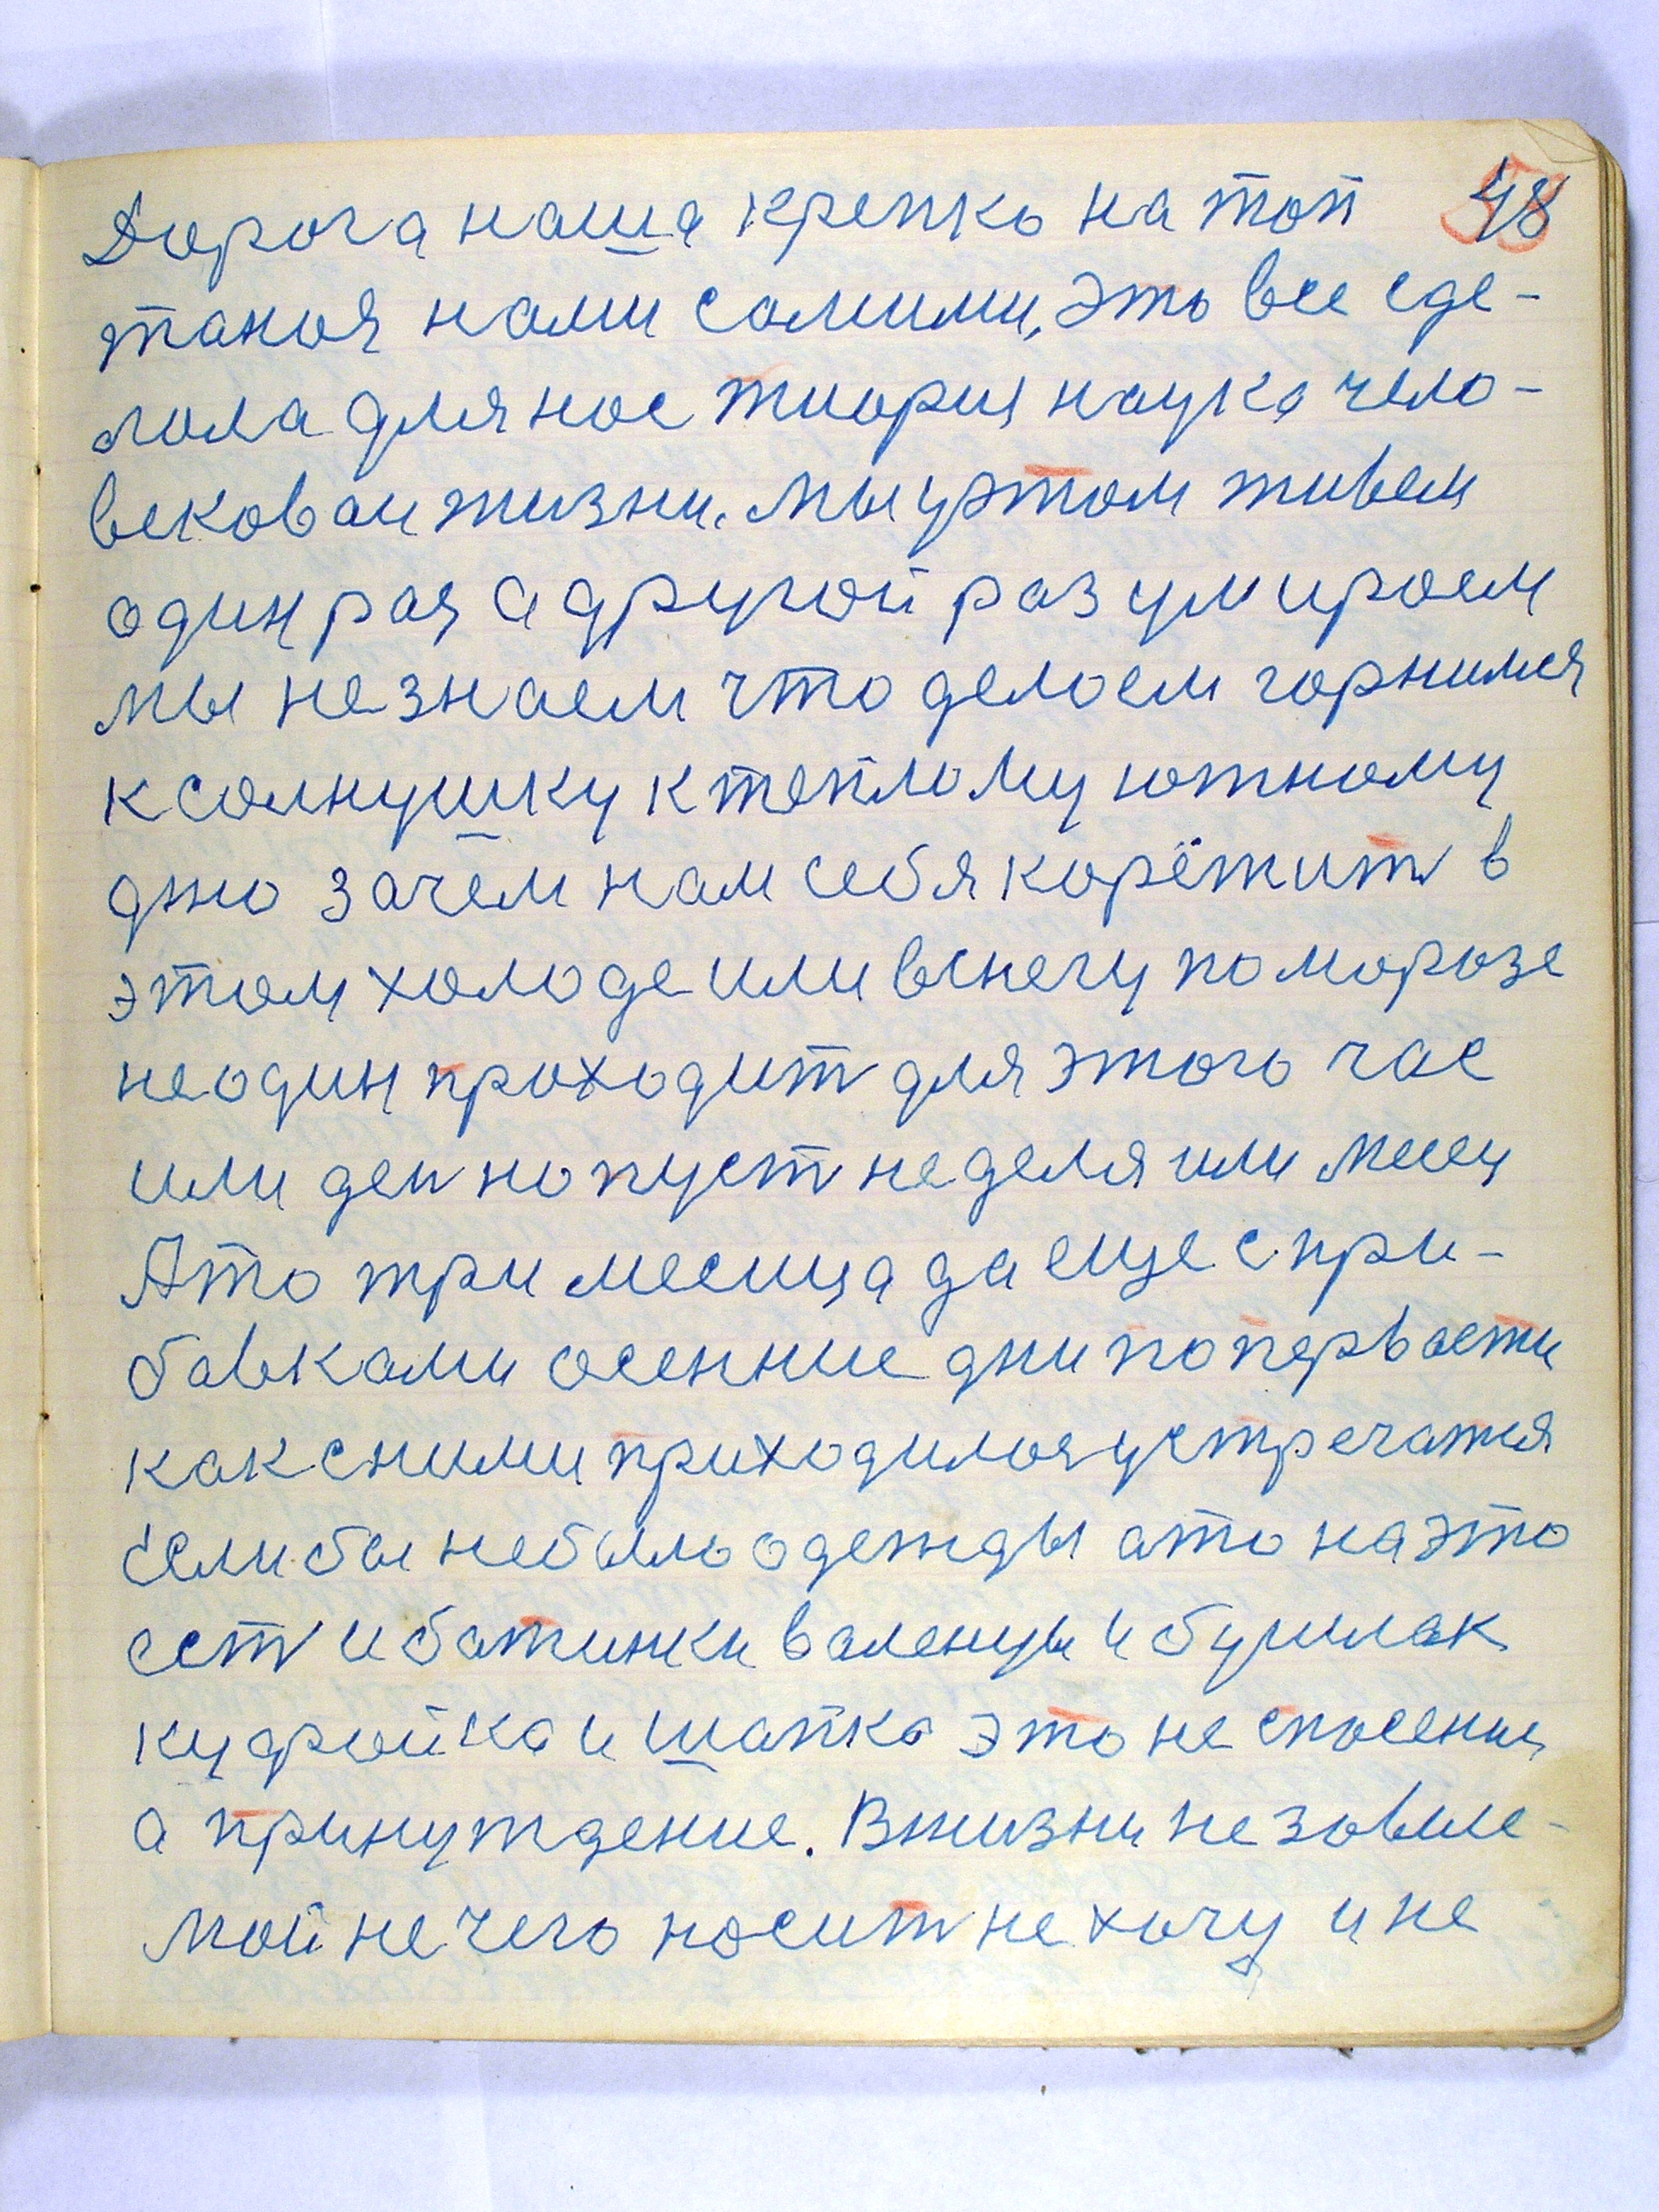 Дорога наша крепко на топ 48
таноя нами самими, это все сде-
лола для нас тиория наука чело-
вековаи жизни. мы у этом живем
один рая а другой раз умироем
мы не знаем что делоем горнимся
к солнушку к теплому южному
дню зачем нам себя корёжит в
этом холоде или вснегу по морозе
не один проходит для этого час
или ден но пуст неделя или месец
А то три месеца да еще с при-
бавками осенние дни по первасти
как сними приходилося устречатся
Если бы небыло одежды а то на это
ест и батинки валенцы и бушлак
кудройка и шапка это не спосение
а принуждение. В жизни не зовисе-
мой не чего носит не хочу и не